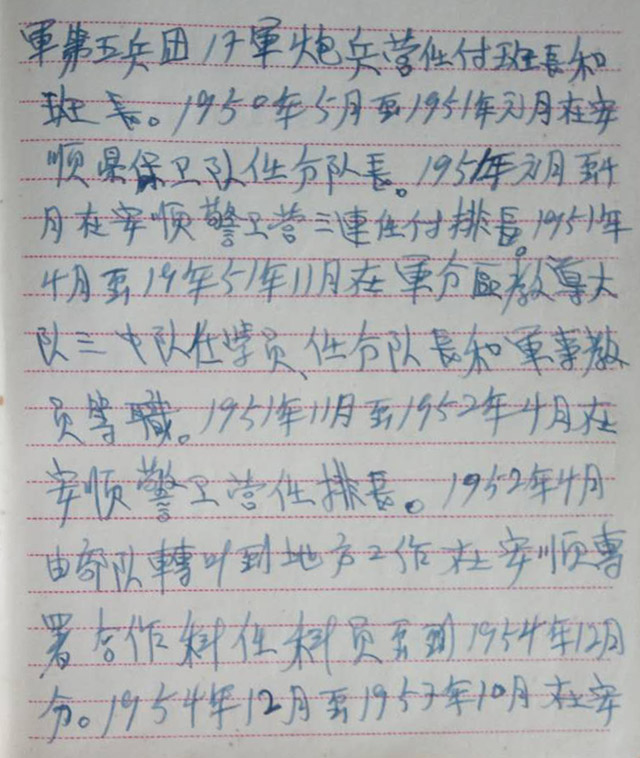 軍第五兵团17軍炮兵营任付班長和
班長。1950年5月至1951年元月在安
顺县保卫队任分队長。1951年元月至4
月在安顺警卫营三連任付排長。1951年
4月至19年51年11月在軍分區教導大
队三中队任学员、任分队長和軍事教
员等職。1951年11月至1952年4月在
安顺警卫营任排長。1952年4月
由部队轉叶到地方工作在安顺專
署合作科任科员至到1954年12月
分。1954年12月至1957年10月在安